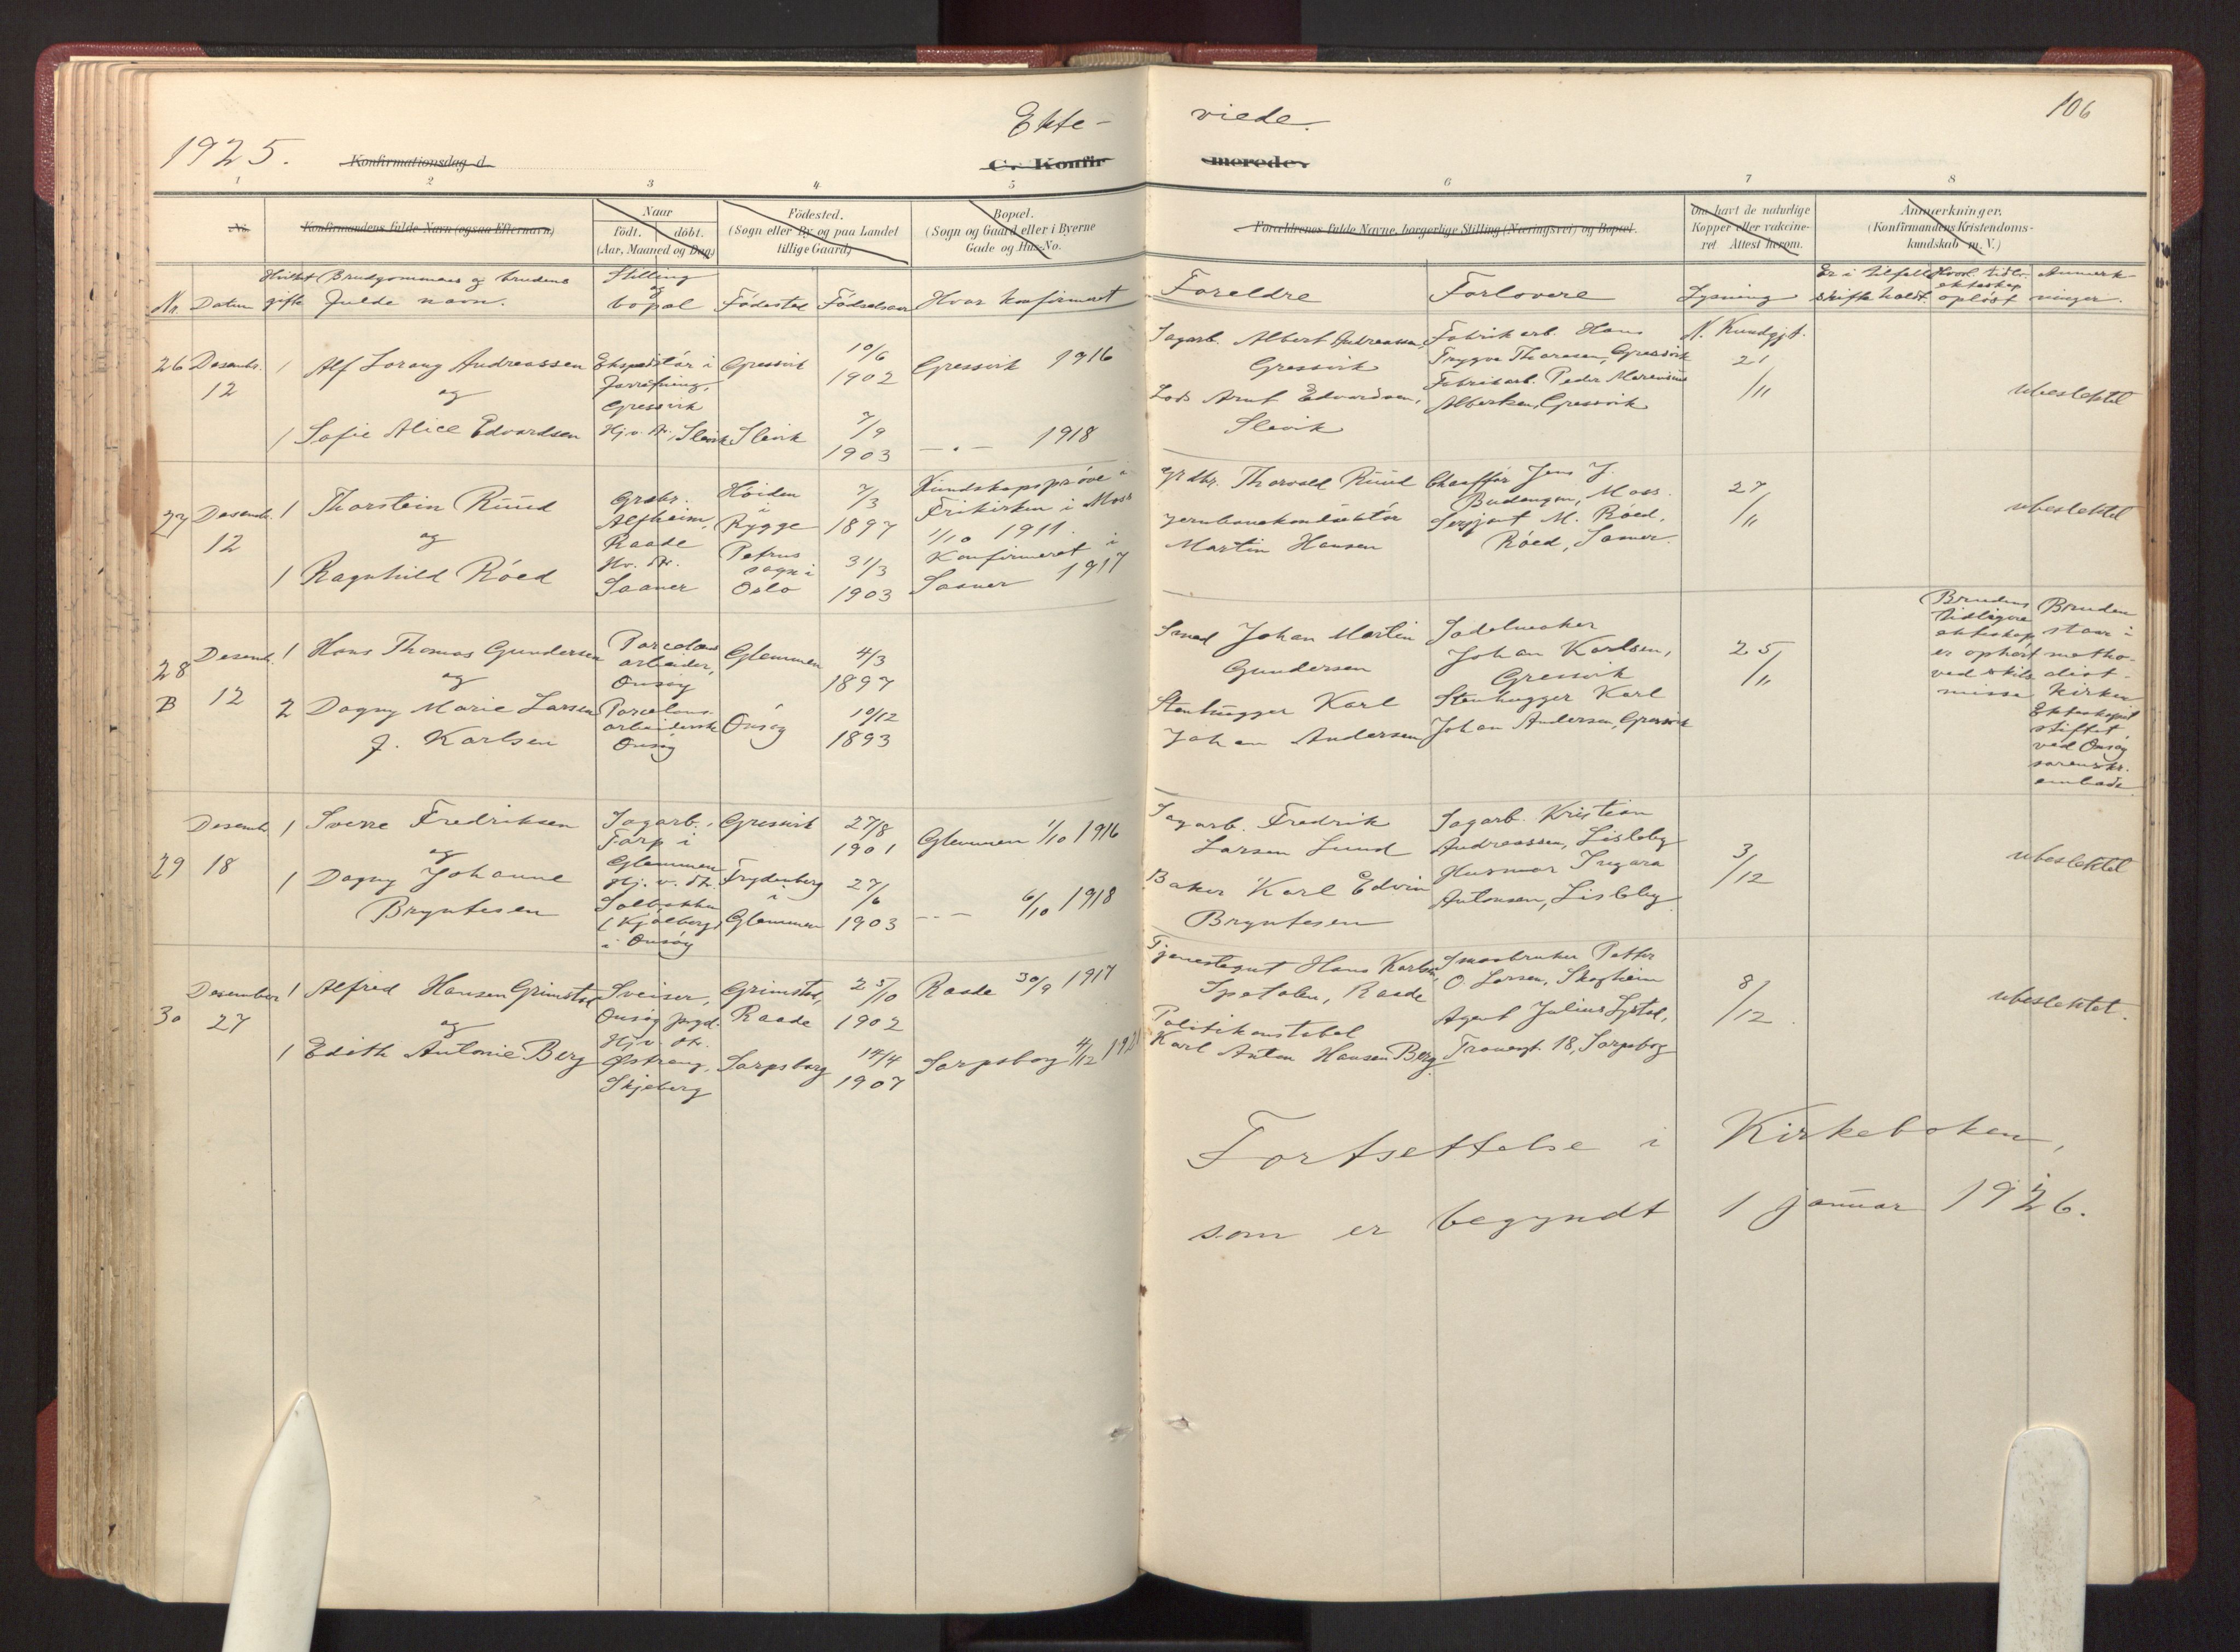 Ekte-
viede.
106
1925.
Konfirmationsdag d.
C. Konfir
merede.
1
2
3
4
5
6
7
8
No.
Konfirmandens fulde Navn (ogsaa Efternavn)
Naar
født.
døbt.
(Aar, Maaned og Dag)
Födested.
(Sogn eller By og paa Landet
tillige Gaard)
Bopæl.
(Sogn og Gaard eller i Byerne
Gade og Hus-No.
Forældrenes fulde Navne, borgerlige Stilling (Næringsvei) og Bopæl.
Om havt de naturlige
Kopper eller vakcine-
ret Attest herom.
Anmærkninger,
(Konfirmandens Kristendoms-
kundskab m. V.)
Nr.
Datum
Hvilket
gifte
Brudgommens og brudens
fulde navn.
Stilling
og
bopæl
Födested
Födselsaar
Hvor konfirmert
Foreldre
Forlovere
Lysning
Er i tilfelle
skifte holdt.
Hvord. tidl.
ekteskap
opløst
Anmerk-
ninger.
26
Desembr.
12
1
Alf Lorang Andreassen
og
1
Sofie Alice Edvardsen
Ekspeditør i
forretning,
Gressvik
Hj.v. dt., Slevik
Gressvik
Slevik
10/6
1902
7/9
1903
Gressvik 1916
— " — 1918
Sagarb. Albert Andreassen,
Gressvik
Lods Arnt Edvardsen,
Slevik
Fabrikarb. Hans
Trygve Thoresen, Gressvik
Fabrikarb. Peder Marensius
Albertsen, Gressvik
N. Kundgjt.
21
/11
ubeslektet
27
Desemb.
12
1
Thorstein Ruud
og
1
Ragnhild Röed
Grdbr.
Alfheim,
Raade
Hv. dt.
Saaner
Höiden
i
Rygge
Petrus
sogn i
Oslo
7/3
1897
31/3
1903
Kundskapsprøve i
Frikirken i Moss
1/10 1911.
Konfirmeret i
Saaner 1917
Grdbr. Thorvald Ruud
Jernbanekonduktör
Martin Hansen
Chauffør Jens J.
Budangen, Moss.
Sersjant M. Röed,
Röed, Saaner.
27
/11
ubeslektet
28
B
Desemb.
12
1
Hans Thomas Gundersen
og
2
Dagny Marie Larsen
f. Karlsen
Porcelæns
arbeider,
Onsöy
Porcelæns
arbeiderske
Onsöy
Glemmen
Onsöy
4/3
1897
10/12
1893
Smed Johan Martin
Gundersen
Stenhugger Karl
Johan Andersen
Sadelmaker
Johan Karlsen,
Gressvik
Stenhugger Karl
Johan Andersen, Gressvik
25
/11
Brudens
tidligere
ekteskap
er ophørt
ved skils-
misse
Bruden
staar i
metho-
dist-
kirken
Ekteskapet
stiftet
ved Onsöy
sorenskr.
embede.
29
Desemb.
18
1
Sverre Fredriksen
og
1
Dagny Johanne
Bryntesen
Sagarb.,
Torp i
Glemmen
Hj. v. dt.
Solbakken
(Kjölberg)
i Onsöy
Gressvik
Frydenberg
i
Glemmen
27/8
1901
27/6
1903
Glemmen 1/10 1916
— " — 6/10 1918
Sagarb. Fredrik
Larsen Lund
Baker Karl Edvin
Bryntesen
Sagarb. Kristian
Andreassen, Lisleby
Husmor Ingara
Antonsen, Lisleby
3
/12
ubeslektet
30
Desember
27
1
Alfred Hansen Grimstad
og
1
Edith Antonie Berg
Sveiser,
Onsöy prgd.
Hj v dt.
Østreng,
Skjeberg
Grimstad,
Raade
Sarpsborg
25/10
1902
14/4
1907
Raade 30/9 1917
Sarpsborg 4/12 192
Tjenestegut Hans Karlsen,
Spetalen, Raade
Politikonstabel
Karl Anton Hansen Berg
Smaabruker Petter
O. Larsen, Skogheim
Agent Julius Lystad,
Tronesgt. 18, Sarpsborg
8
/12
ubeslektet.
Fortsettelse i Kirkeboken,
som er begyndt 1 januar 1926.